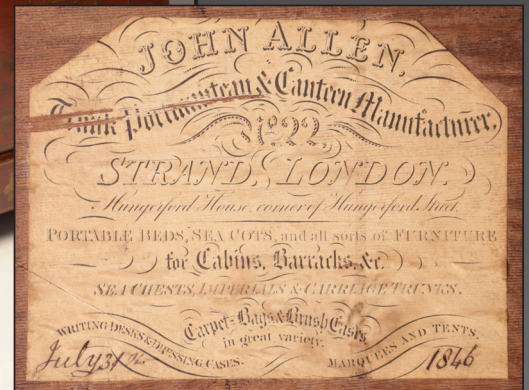 JOHN ALLEN,
Trunk Portmanteau & Canteen Manufacturer,
No. 22,
STRAND, LONDON.
Hungerford House, corner of Hungerford Street,
PORTABLE BEDS, SEA COTS, and all sorts of FURNITURE
for Cabins, Barracks, &c.
SEA CHESTS, IMPERIALS & CARRIAGE TRUNKS.
Carpet-Bags & Brush Cases,
in great variety.
WRITING DESKS & DRESSING CASES.
MARQUEES AND TENTS.
July 31st
1846